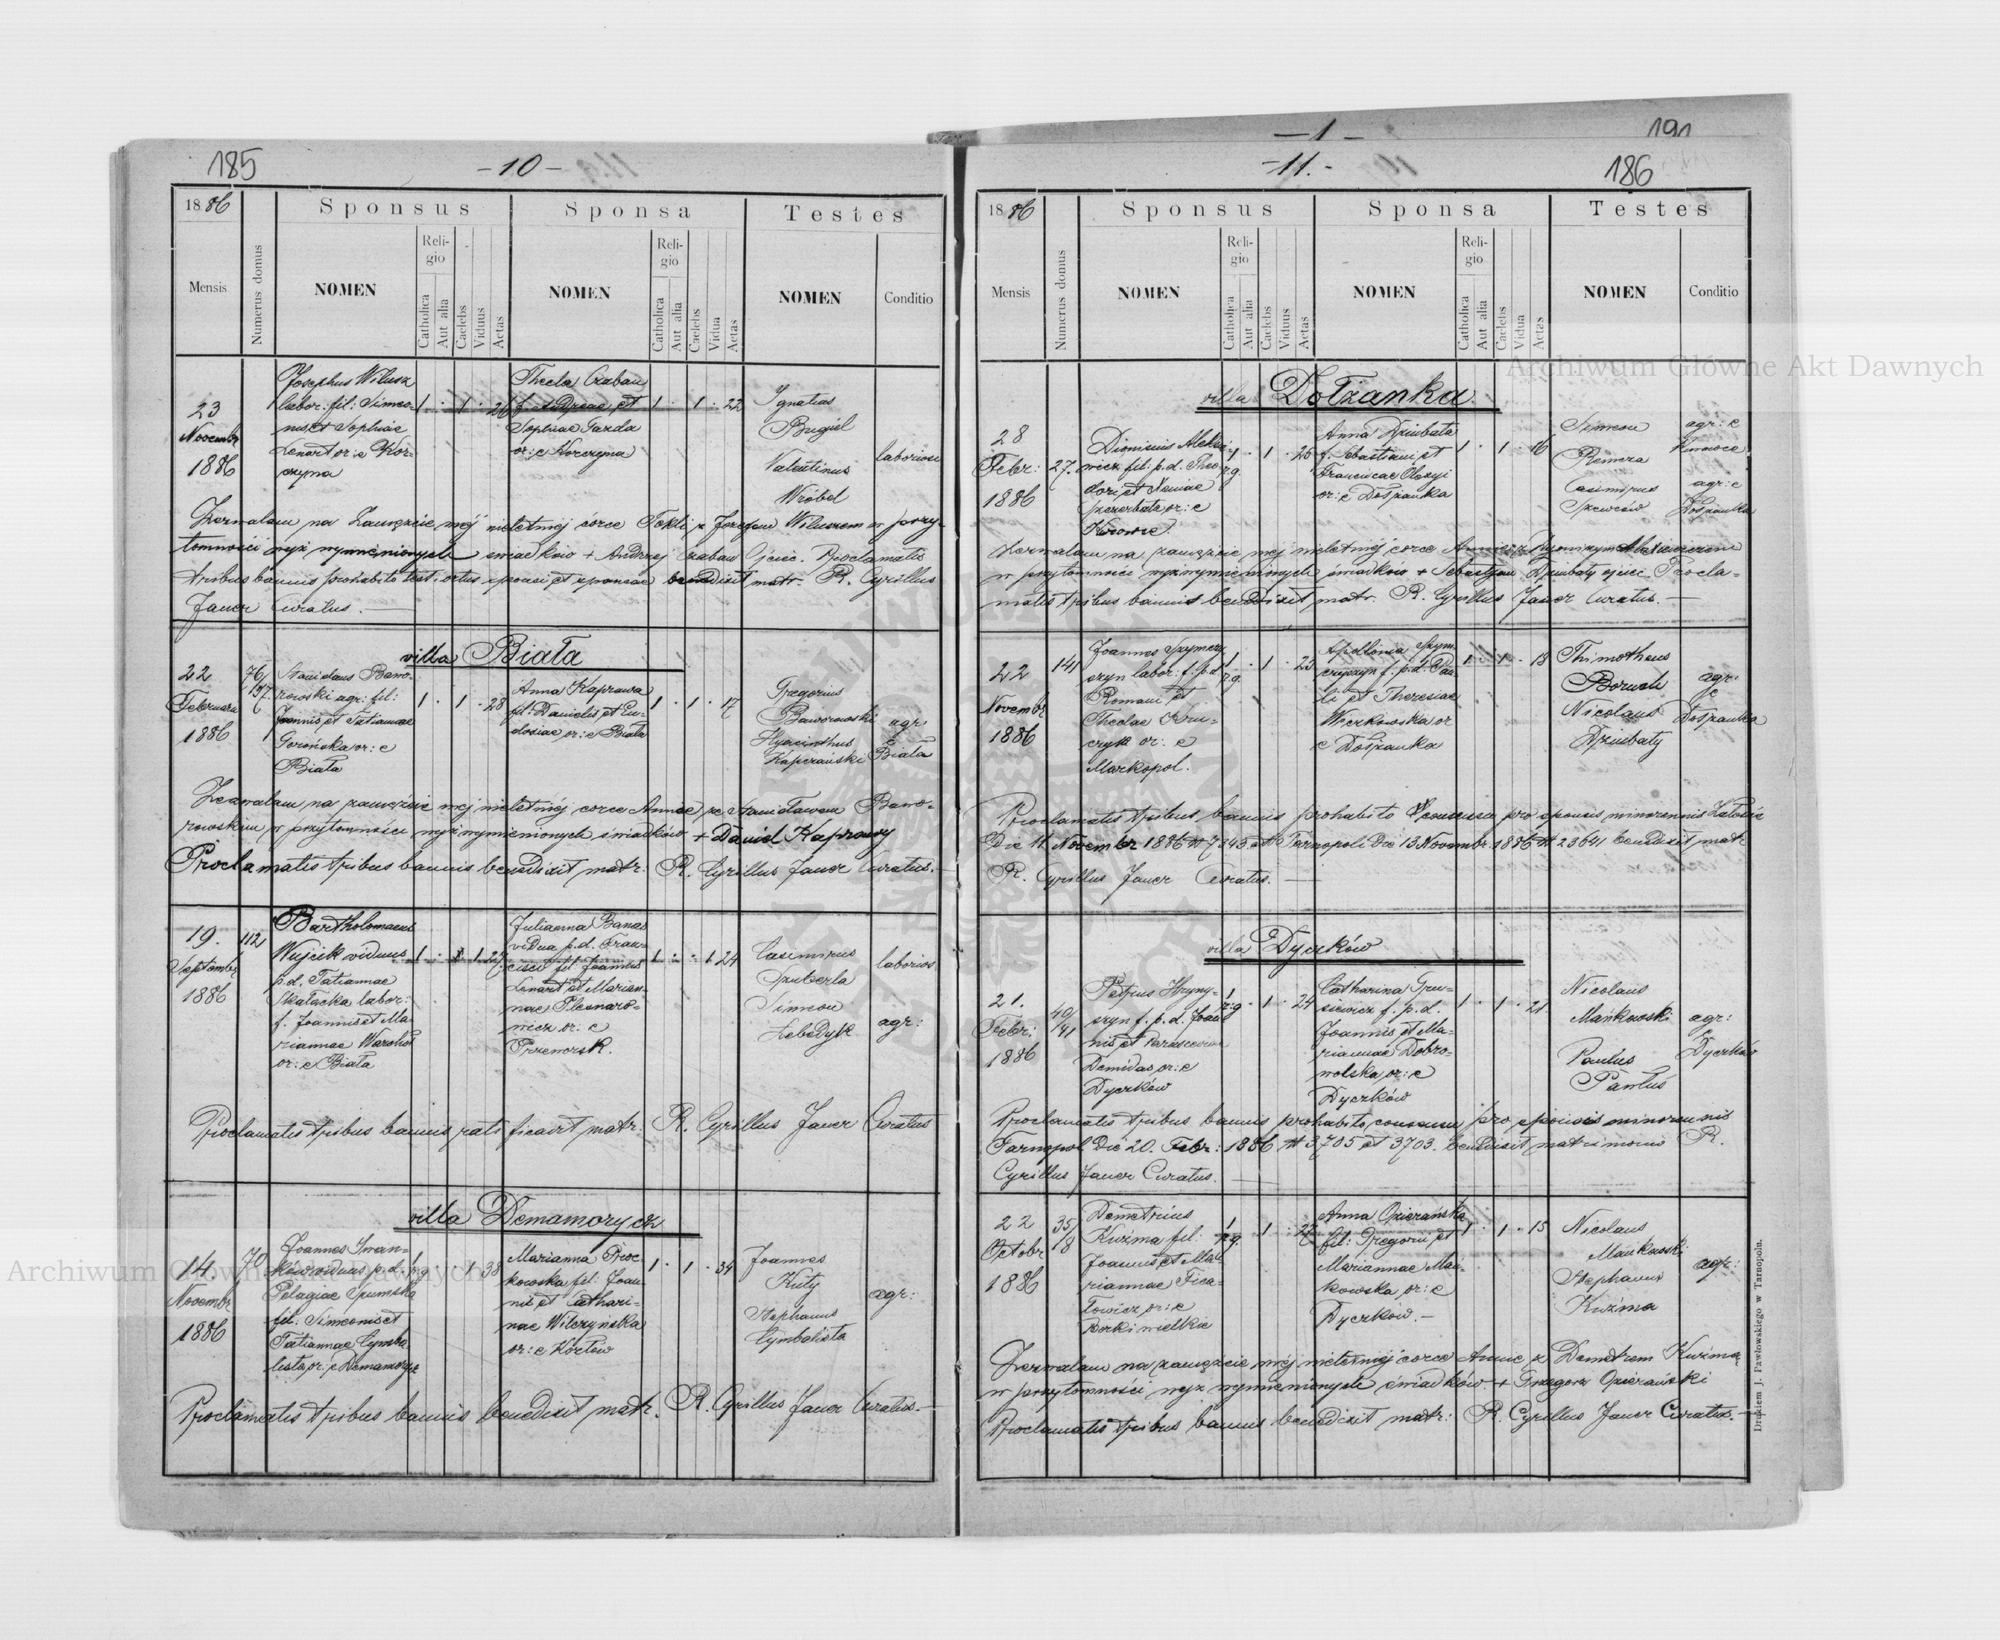 185
-10-
1886
Sponsus
Sponsa
Testes
Mensis
Numerus domus
NOMEN
Religio
Catholica
Aut alia
Caelebs
Viduus
Aetas
NOMEN
Religio
Catholica
Aut alia
Caelebs
Vidua
Aetas
NOMEN
Conditio
23
Novembr
1886
Josephus Wilusz
labor: fil: Simeo-
nis et Sophiae
Lenart or: e Kor-
czyna
1 . 1 . 26
Thecla Czaban
f. Andreae et
Sophiae Gazda
or: e Korczyna
1 . 1 . 22
Ignatius
Bugiel
Valentinus
Wróbel
laboriosi
Zezwalam na zamęzcie méj nieletniéj córce Tekli z Józefem Wiluszem w przy-
tomności wyż wymienionych swiadków + Andrzej Czaban Ojciec. Proclamatis
tribus bannis prohabito test: ortus sponsi et sponsae benedixit matr. R. Cyrillus
Jauer Curatus. —
villa Biała
22
Februarii
1886
76/197
Stanislaus Bawo-
rowski agr. fil:
Joannis et Tatiannae
Gorońska or: e
Biała
1 . 1 . 28
Anna Kaprawa
fil: Danielis et Eu-
dosiae or: e Biała
1 . 1 . 17
Gregorius
Baworowski
Hyacinthus
agr
e
Biała
Zezwalam na zamęźcie mej nieletniéj corce Annie ze Stanisławem Bawo-
rowskim w przytomności wyż wymienionych świadków + Daniel Kaprawy
Proclamatis tribus bannis benedixit matr. R. Cyrillus Jauer Curatus. —
19.
Septembr
1886
112
Bartholomaeus
Wujcik viduus
p.d. Tatiannae
Skałacka labor:
f. Joannis et Ma-
riannae
or: e Biała
1 . 1 27
Julianna Banas
vidua p.d. Fran-
cisci fil Joannis
Lenart et Marian-
nae
or: e
Przeworsk.
1 . . 1 24
Casimirus
Simeon
Lebedyk
laborios
agr:
Proclamatis tribus bannis ratificavit matr: R. Cyrillus Jauer Curatus
villa Demamorycz
14
Novembr
1886
70
Joannes Iwan-
ków viduus p.d.
Pelagiae Szumska
fil: Simeonis et
Tatiannae Cymba-
lista or: e Demamorycz
1 38
Marianna
fil: Joan-
nis et Cathari-
nae Wilczynska
or: e Kozłów
1 . 1 . 34
Joannes
Kuty
Stephanus
Cymbalista
agr:
Proclamatis tribus bannis benedixit matr. R. Cyrillus Jauer Curatus. —
-1-
191
-11.-
186
1886
Sponsus
Sponsa
Testes
Mensis
Numerus domus
NOMEN
Religio
Catholica
Aut alia
Caelebs
Viduus
Aetas
NOMEN
Religio
Catholica
Aut alia
Caelebs
Vidua
Aetas
NOMEN
Conditio
villa Dołżanka
28
Febr:
1886
27.
Dionisius Aleksie-
wicz fil: p.d. Theo-
dori et Xeniae
Szczerbata or: e
1 r.g. . 1 . 25
Anna Dziubata
f. Sebastiani et
Franciscae
or: e Dołżanka
1 . 1 . 16
Simeon
Remeza
Casimirus
Szewców
agr: e
agr: e
Dołżanka
Zezwalam na zamęzcie mej nieletniéj corce Annie z Dyonizym Aleksiewiczem
w przytomności wyżwymienionych świadków + Sebastyan Dziubaty ojciec. Procla-
matis tribus bannis benedixit matr. R. Cyrillus Jauer Curatus. —
22
Novembr
1886
141
Joannes Szymcz-
szyn labor: f. p.d.
Romani et
Theclae
or: e
Markopol.
1 r.g. . 1 . 23
Apollonia Szym-
czyszyn f. p.d. Pau-
li et Theresiae
Wiczkowska or
e Dołżanka
1 . 1 . 18
Thimotheus
Nicolaus
Dziubaty
agr:
e
Dołżanka
Proclamatis tribus bannis prohabito Consensu pro sponsis minorennis
Die 11 November 1886 # 7343 Tarnopoli Die 13 Novembr. 1886 # 23641 benedixit matr
R. Cyrillus Jauer Curatus. —
villa Dyczków
21.
Febr:
1886
40/41
Petrus Hryny-
szyn f. p.d. Joan
nis et
Demidas or: e
Dyczków
1 r.g . 1 . 24
Catharina Gru-
siewicz f. p.d.
Joannis et Ma-
riannae Dobro-
wolska or: e
Dyczków
1 . 1 . 21
Nicolaus
Mańkowski
Paulus
Pawluś
agr:
e
Dyczków
Proclamatis tribus bannis prohabito consensu pro sponsis minorennis
Tarnopol Die 20. Febr: 1886 # 3705 et 3703. benedixit matrimonio R.
Cyrillus Jauer Curatus. —
22
Octobr
1886
35/18
Demetrius
Kuźma fil:
Joannis et Ma-
riannae
or: e
Borki wielkie
1 r.g. . 1 . 27
Anna Opierańska
fil: Gregorii et
Mariannae Mań-
kowska or: e
Dyczków. —
1 . 1 . 15
Nicolaus
Mańkowski
Stephanus
Kuźma
agr:
Zezwalam na zamęzcie mej nieletniej corce Annie z Dmetrem Kuźmą
w przytomności wyż wymienionych świadków. + Grzegorz Opierański
Proclamatis tribus bannis benedixit matr: R. Cyrillus Jauer Curatus. —
Drukiem J. Pawłowskiego w Tarnopolu.
Archiwum Główne Akt Dawnych
Archiwum Główne Akt Dawnych